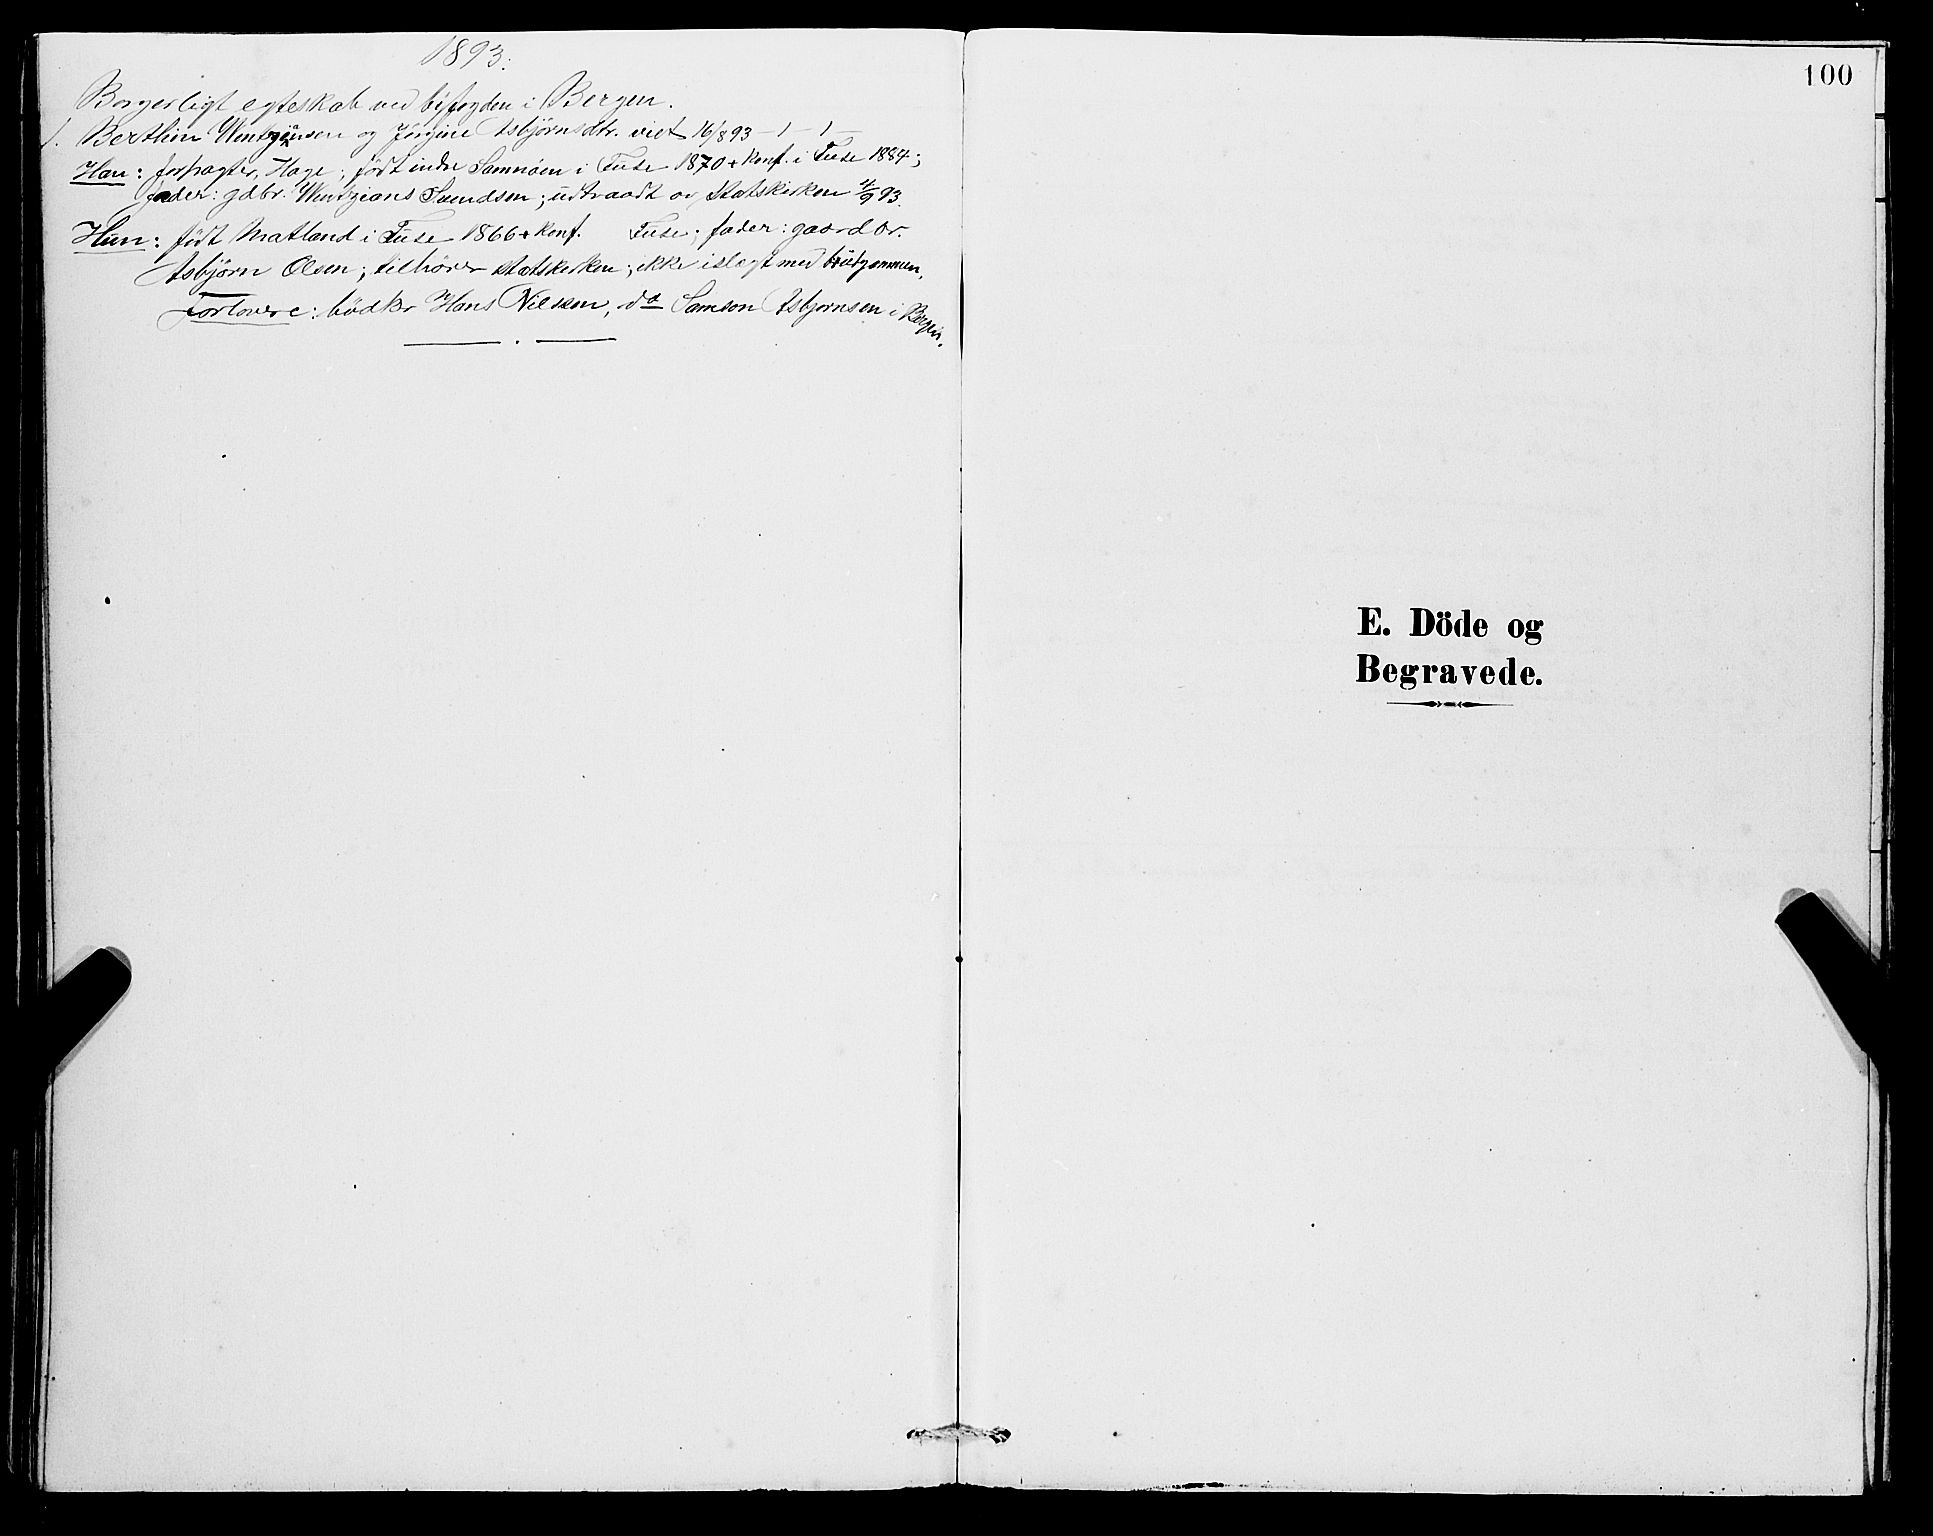 1893.
Borgerligt egteskab ved byfogden i Bergen.
1. Berthin Wentziansen og Jørgine Asbjørnsdtr. viet 16/8 93 – 1 – 1 –
Han: forpagter, Hage; født indre Samnøen i Fuse 1870 + konf. i Fuse 1884;
fader: gdbr. Wentzians Svendsen; udtraadt av statskirken 4/9 93.
Hun: født Matland i Fuse 1866 + konf. Fuse; fader: gaardbr.
Asbjørn Olsen; tilhører statskirken; ikke i slegt med brudgommen.
Forlovere: bødker Hans Nilssen, do Samson Asbjørnsen i Bergen.
100
E. Döde og
Begravede.